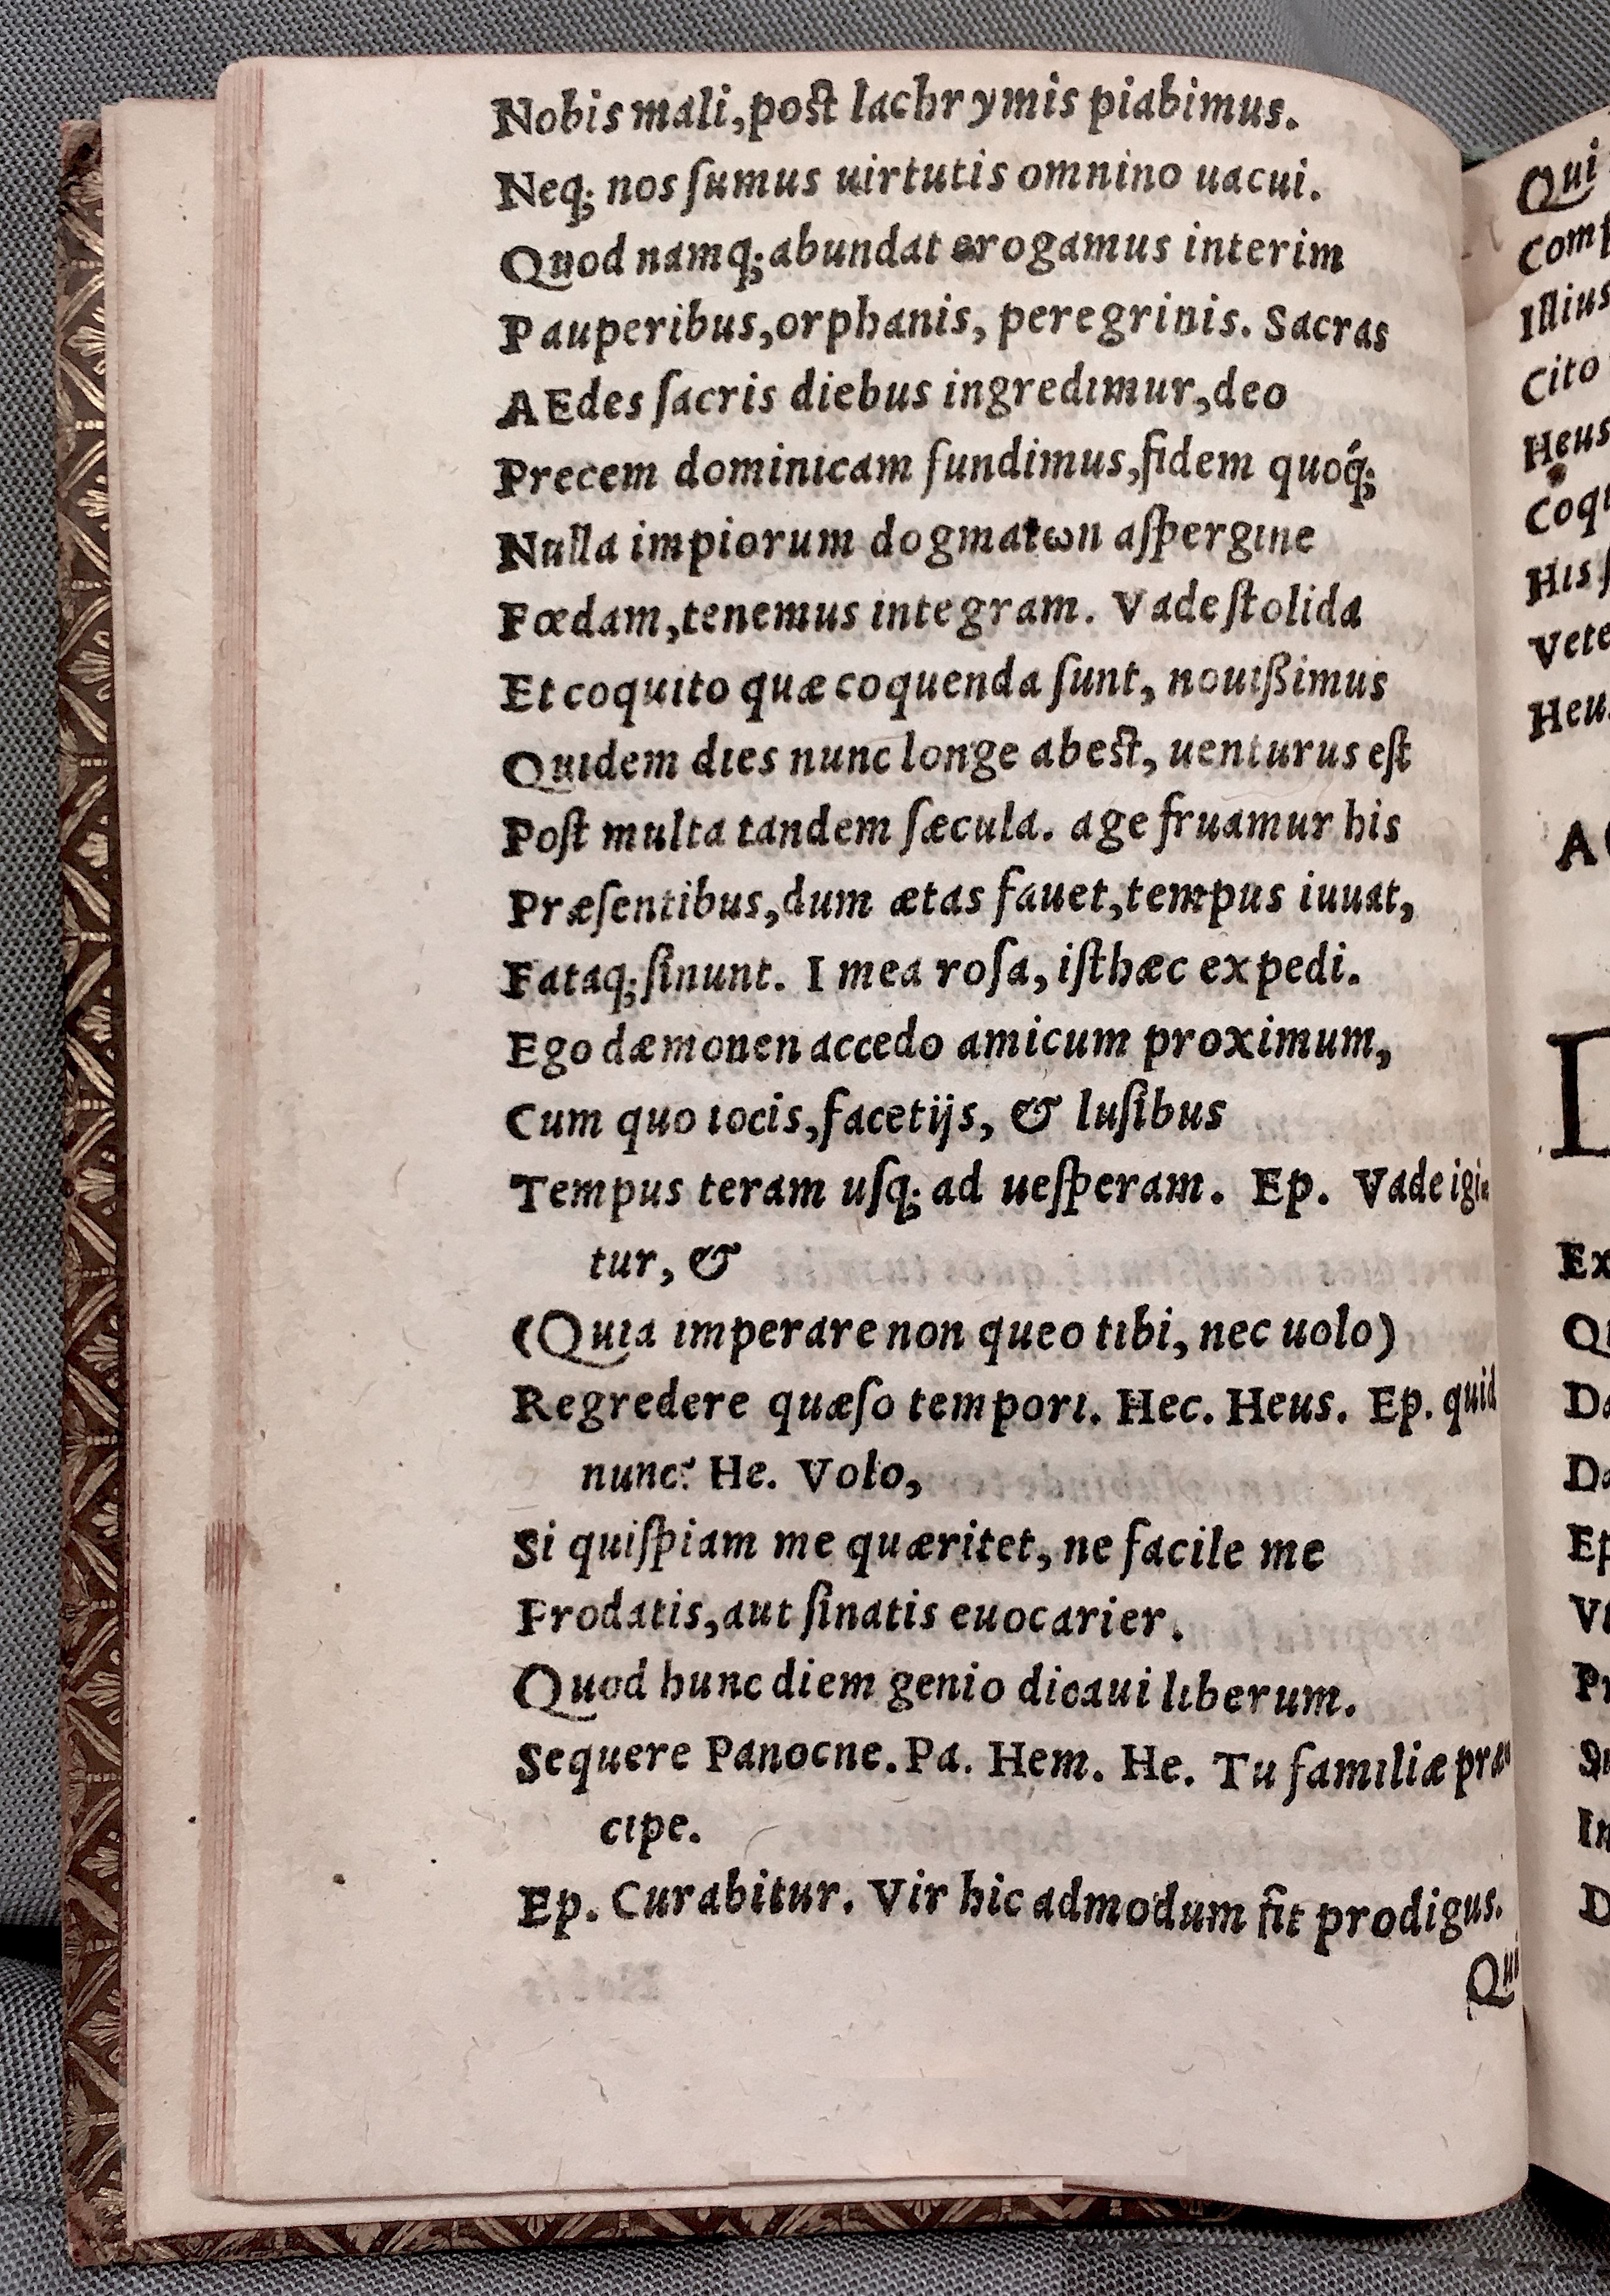 Nobis mali, post lachrymis piabimus.
Neq; nos ſumus uirtutis omnino uacui.
Quod namq; abundat erogamus interim
Pauperibus, orphanis, peregrinis. Sacras
AEdes ſacris diebus ingredimur, deo
Precem dominicam fundimus, fidem quoq́;
Nulla impiorum dogmatωn aſpergine
Fœdam, tenemus integram. Vade ſtolida
Et coquito quæ coquenda ſunt, nouißimus
Quidem dies nunc longe abest, uenturus eſt
Poſt multa tandem ſæcula. age fruamur his
Præſentibus, dum ætas fauet, tempus iuuat,
Fataq; ſinunt. I mea roſa, iſthæc expedi.
Ego dæmonen accedo amicum proximum,
Cum quo iocis, facetijs, & luſibus
Tempus teram uſq; ad ueſperam. Ep. Vade igi-
tur, &
(Quia imperare non queo tibi, nec uolo)
Regredere quæſo tempori. Hec. Heus. Ep. quid
nunc? He. Volo,
Si quiſpiam me quæritet, ne facile me
Prodatis, aut ſinatis euocarier.
Quod hunc diem genio dicaui liberum.
Sequere Panocne. Pa. Hem. He. Tu familiæ præ-
cipe.
Ep. Curabitur. Vir hic admodum fit prodigus.
Qui
Qui
Illius
Cito
Heus
His
A
Ex